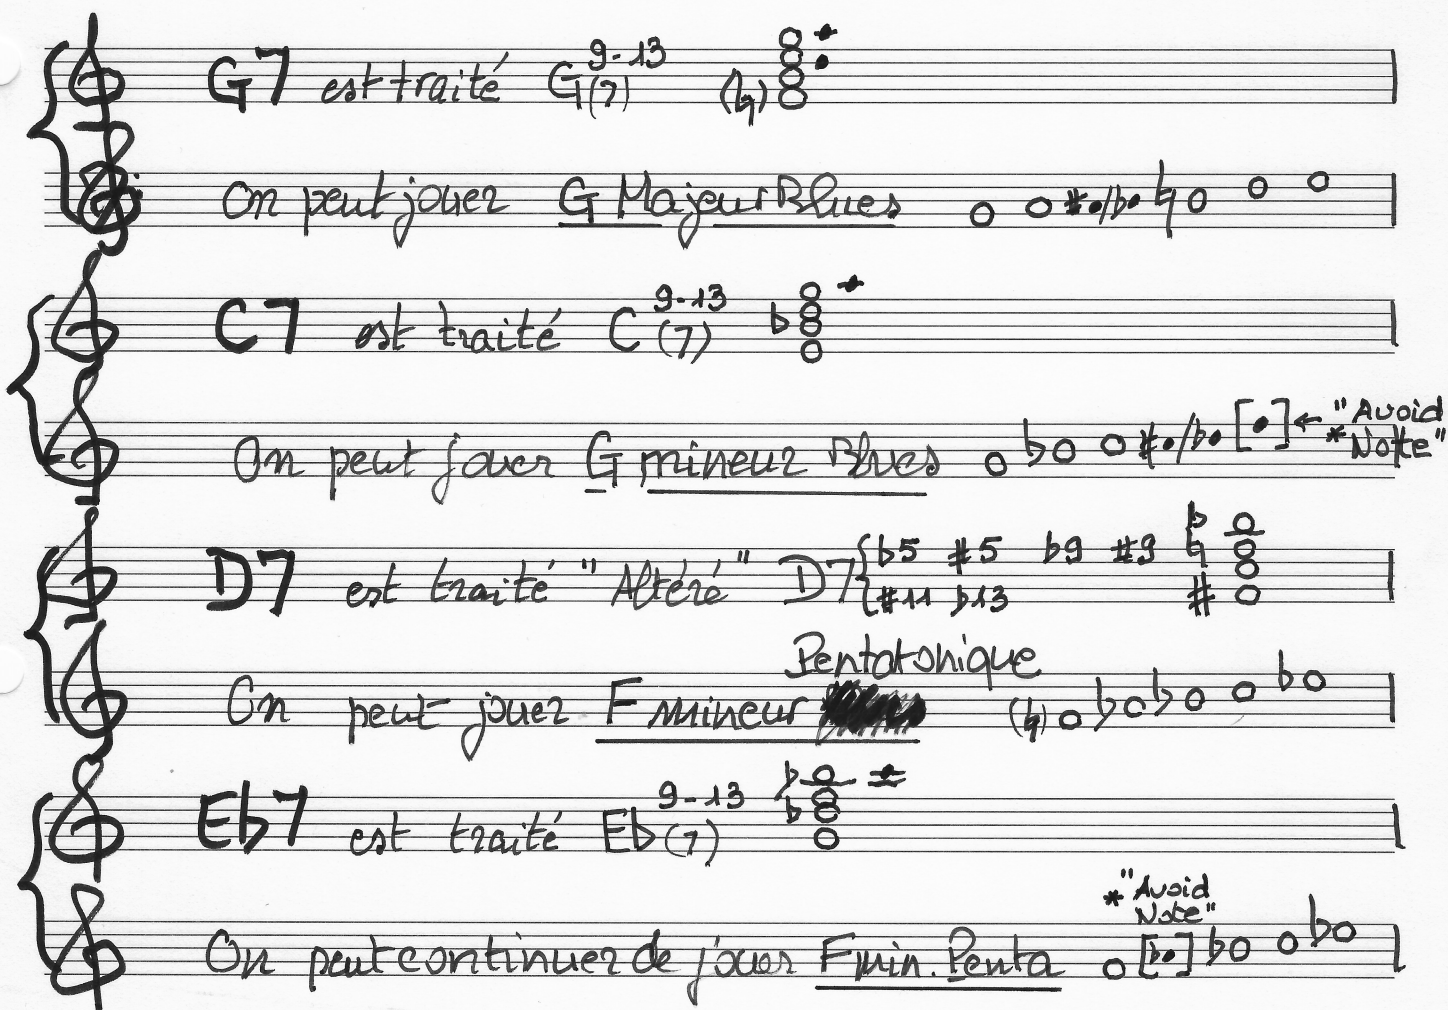 G7 est traité G(7) 9-13 (♮)
On peut jouer G Majeur Blues #/b ♮
C7 est traité C(7) 9-13 b
On peut jouer G mineur Blues b #/b [ ] ← "Avoid
* Note"
D7 est traité "Altéré" D7 { b5 #5 b9 #9
#11 b13
Pentatonique
On peut jouer F mineur (♮) b b b
Eb7 est traité Eb(7) 9-13 b b
* "Avoid
Note"
On peut continuer de jouer F min. Penta [b] b b